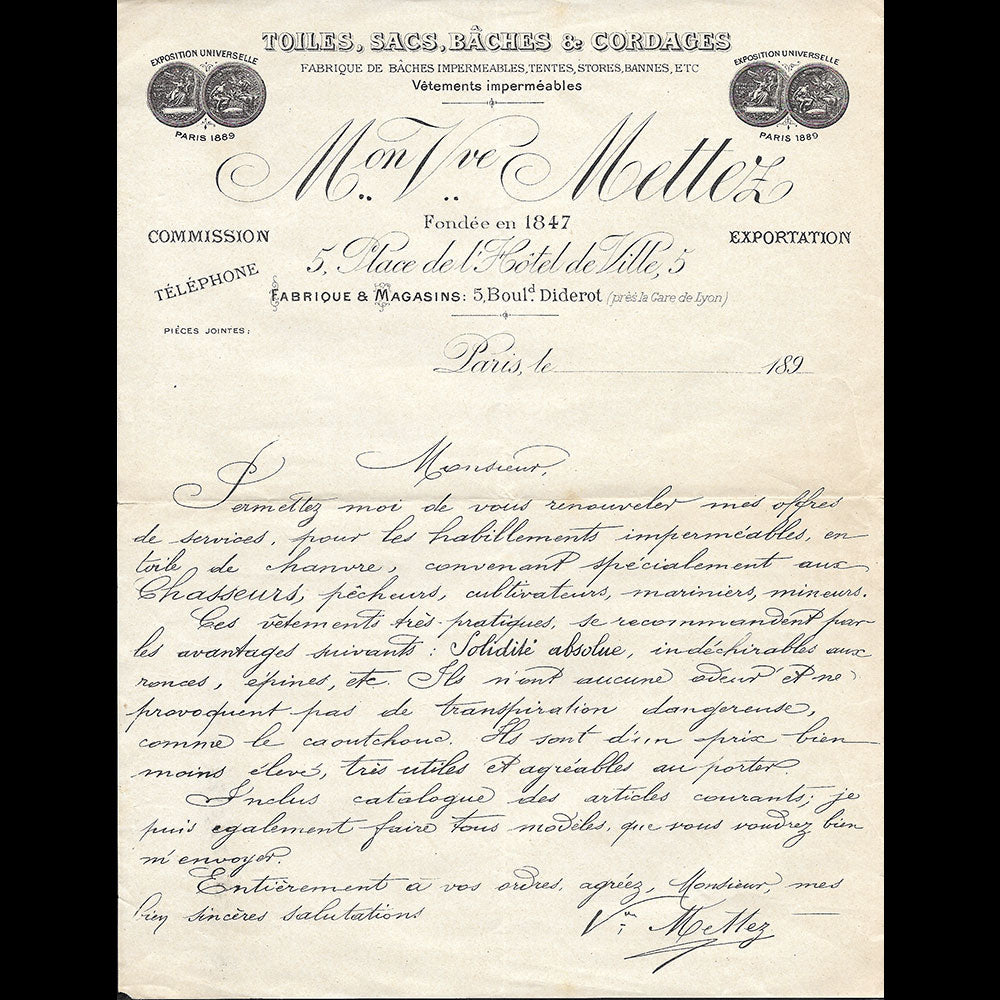 TOILES, SACS, BÂCHES & CORDAGES
EXPOSITION UNIVERSELLE
PARIS 1889
EXPOSITION UNIVERSELLE
PARIS 1889
FABRIQUE DE BÂCHES IMPERMEABLES, TENTES, STORES, BANNES, ETC
Vêtements imperméables
Mon Vve Mettez
Fondée en 1847
COMMISSION
EXPORTATION
5, Place de l'Hôtel de Ville, 5
TÉLÉPHONE
FABRIQUE & MAGASINS: 5, Bould. Diderot (près la Gare de Lyon)
PIÈCES JOINTES:
Paris, le 189
Monsieur,
Permettez moi de vous renouveler mes offres
de services, pour les habillements imperméables, en
toile de chanvre, convenant spécialement aux
Chasseurs, pêcheurs, cultivateurs, mariniers, mineurs.
Ces vêtements très-pratiques, se recommandent par
les avantages suivants: Solidité absolue, indéchirables aux
ronces, épines, etc. Ils n'ont aucune odeur et ne
provoquent pas de transpiration dangereuse,
comme le caoutchouc. Ils sont d'un prix bien
moins élevé, très utiles et agréables au porter.
J'inclus catalogue des articles courants; je
puis egalement faire tous modèles, que vous voudrez bien
m'envoyer.
Entièrement à vos ordres, agréez, Monsieur, mes
bien sincères salutations
Vve Mettez